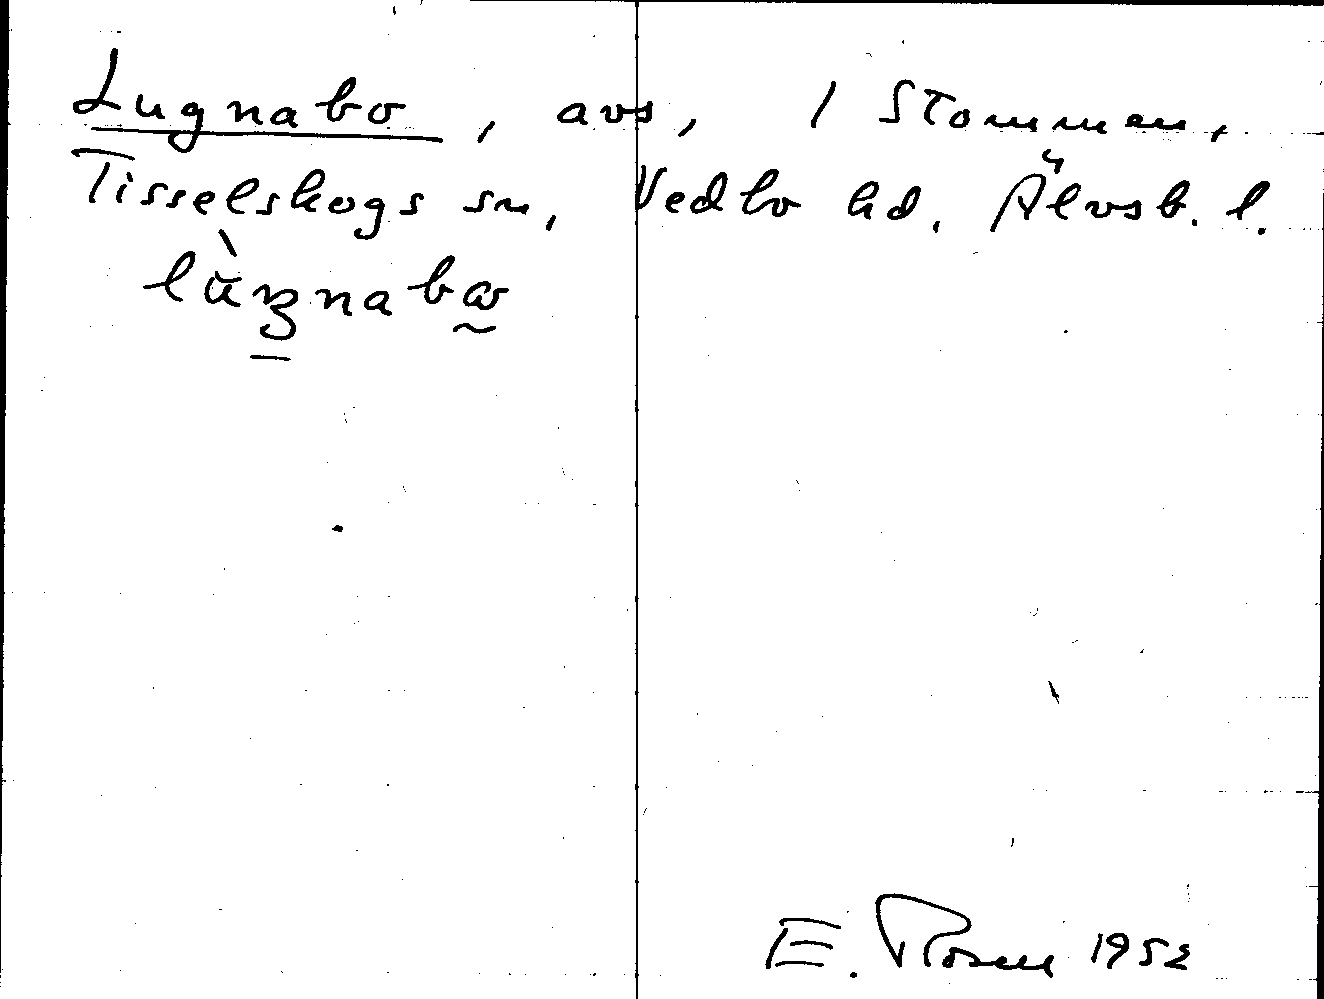 Lugnabo, avs, 1 Stommen,
Tisselskogs sn, Vedbo hd. Älvsb. l.
lùŋnabω
E. Rosen 1952